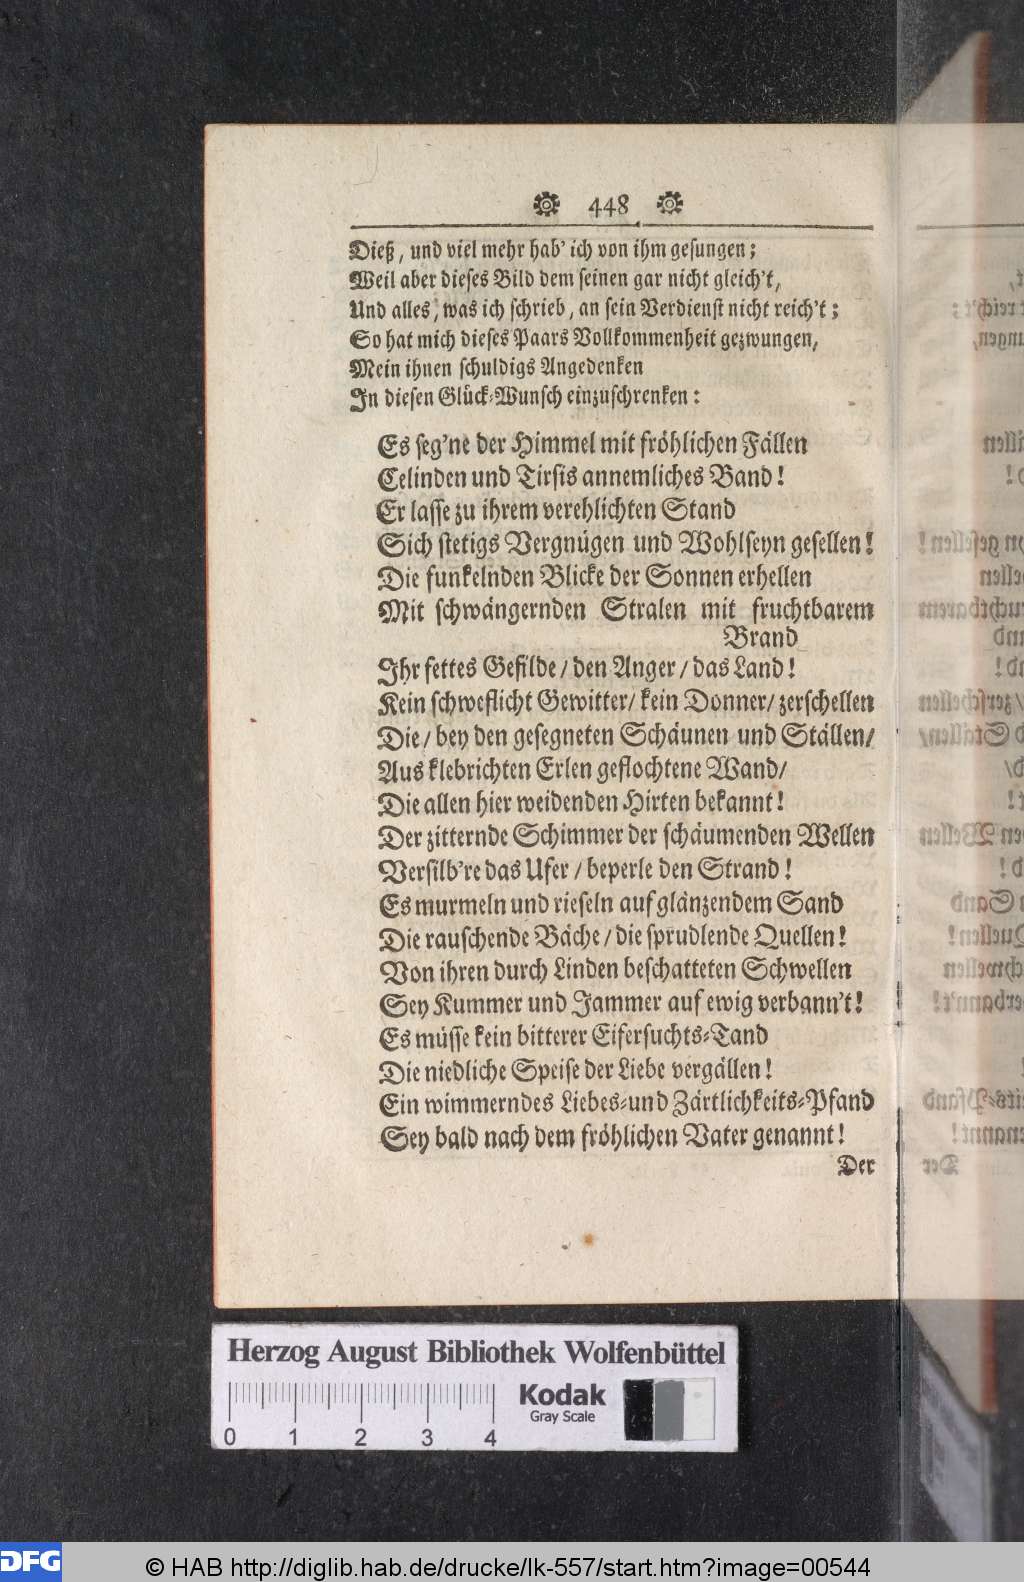 448
Dieß, und viel mehr hab' ich von ihm gesungen;
Weil aber dieses Bild dem seinen gar nicht gleich't,
Und alles, was ich schrieb, an sein Verdienst nicht reich't;
So hat mich dieses Paars Vollkommenheit gezwungen,
Mein ihnen schuldigs Angedenken
In diesen Glück-Wunsch einzuschrenken:
Es seg'ne der Himmel mit fröhlichen Fällen
Celinden und Tirsis annemliches Band!
Er lasse zu ihrem verehlichten Stand
Sich stetigs Vergnügen und Wohlseyn gesellen!
Die funkelnden Blicke der Sonnen erhellen
Mit schwängernden Stralen mit fruchtbarem
Brand
Ihr fettes Gefilde/ den Anger/ das Land!
Kein schweflicht Gewitter/ kein Donner/ zerschellen
Die/ bey den gesegneten Schäunen und Ställen/
Aus klebrichten Erlen geflochtene Wand/
Die allen hier weidenden Hirten bekannt!
Der zitternde Schimmer der schäumenden Wellen
Versilb're das Ufer/ beperle den Strand!
Es murmeln und rieseln auf glänzendem Sand
Die rauschende Bäche/ die sprudlende Quellen!
Von ihren durch Linden beschatteten Schwellen
Sey Kummer und Jammer auf ewig verbann't!
Es müsse kein bitterer Eifersuchts-Tand
Die niedliche Speise der Liebe vergällen!
Ein wimmerndes Liebes-und Zärtlichkeits-Pfand
Sey bald nach dem fröhlichen Vater genannt!
Der
Herzog August Bibliothek Wolfenbüttel
Kodak
Gray Scale
0 1 2 3 4
DFG
© HAB http://diglib.hab.de/drucke/lk-557/start.htm?image=00544